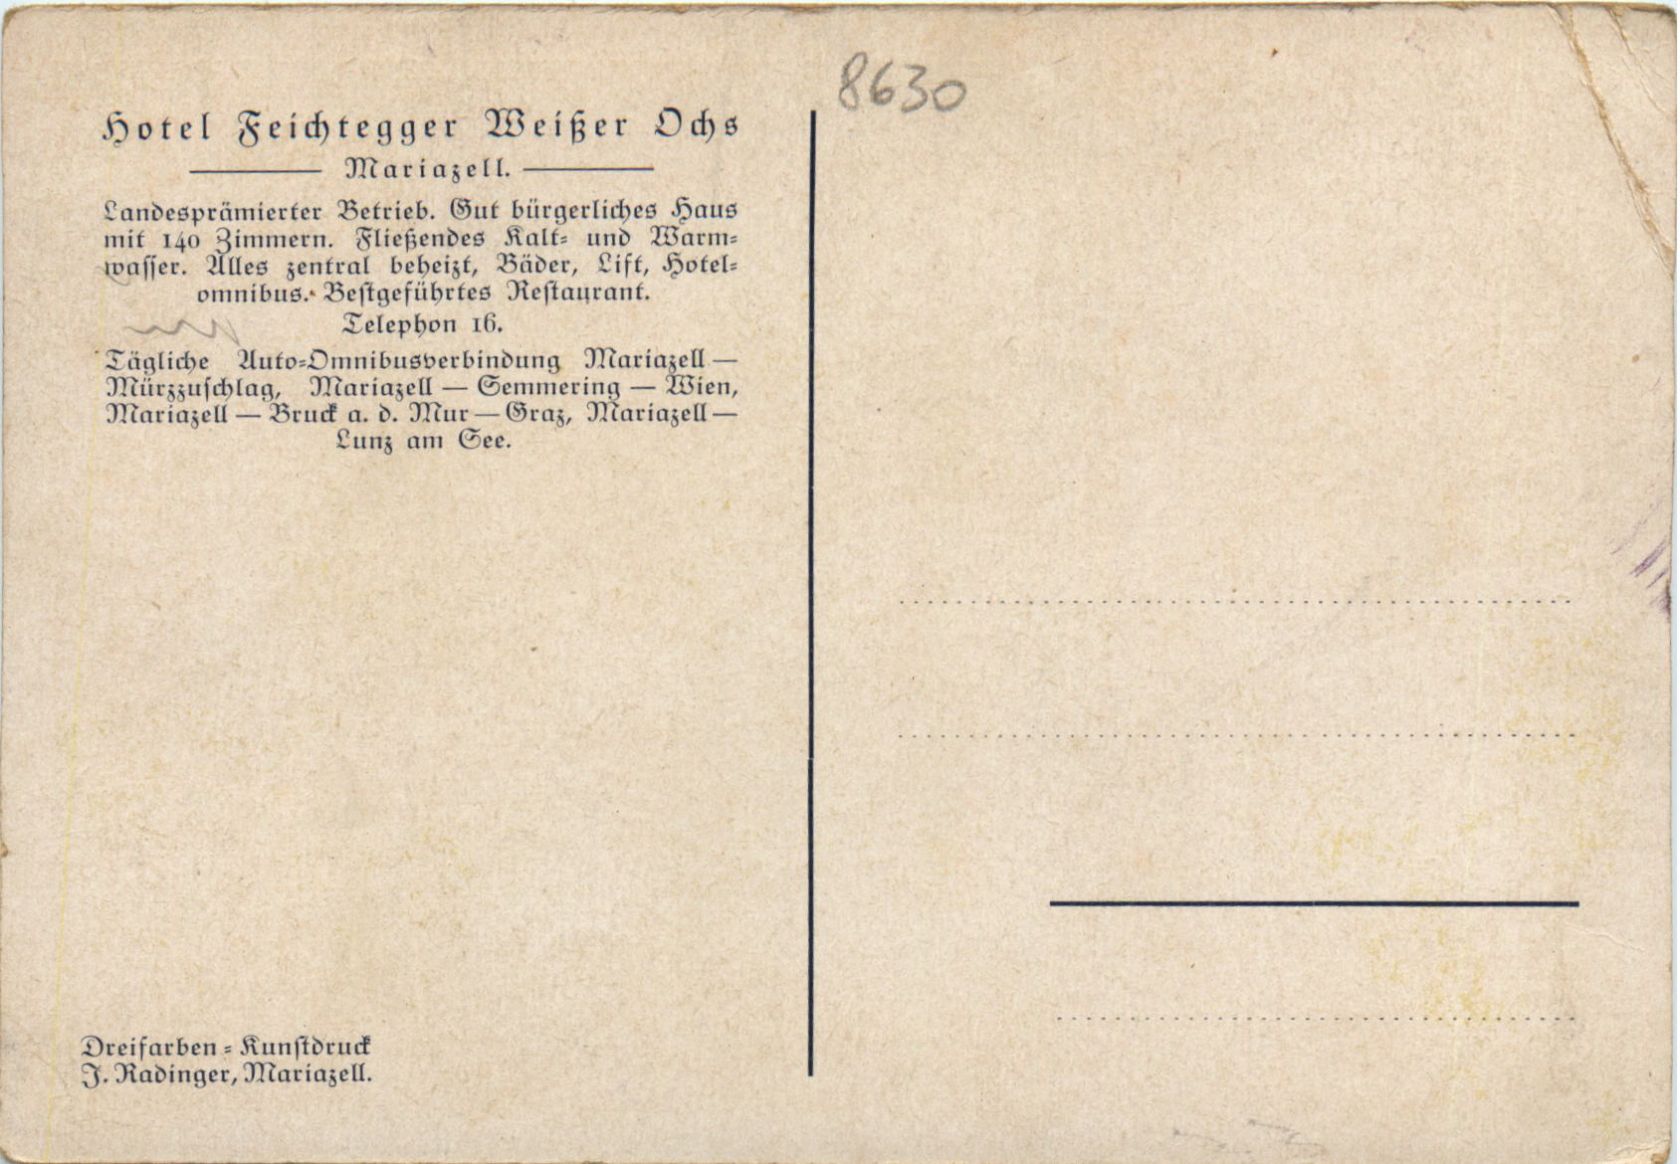 8630
Hotel Feichtegger Weißer Ochs
Mariazell.
Landesprämierter Betrieb. Gut bürgerliches Haus
mit 140 Zimmern. Fließendes Kalt- und Warm-
wasser. Alles zentral beheizt, Bäder, Lift, Hotel-
omnibus. Bestgeführtes Restaurant.
Telephon 16.
Tägliche Auto-Omnibusverbindung Mariazell —
Mürzzuschlag, Mariazell — Semmering — Wien,
Mariazell — Bruck a. d. Mur — Graz, Mariazell —
Lunz am See.
Dreifarben - Kunstdruck
J. Radinger, Mariazell.